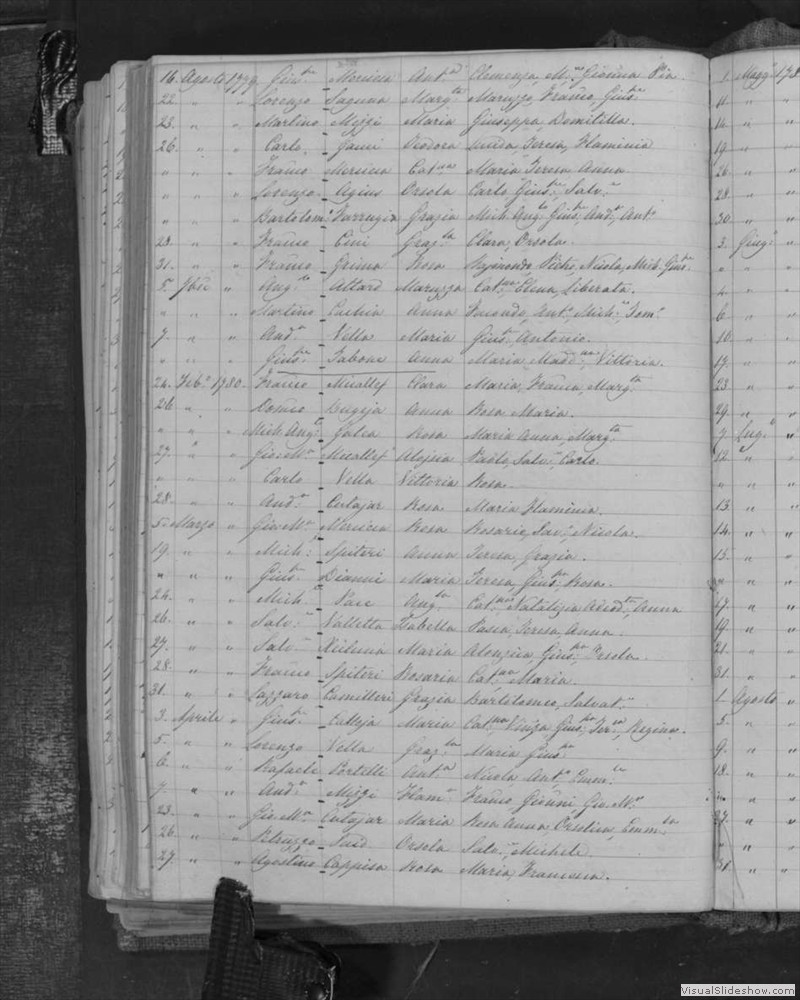 16. Agosto 1779 Gius.e Mercieca Ant.a Clemenza, M.a Gionna Pia
22. " " Lorenzo Laguna Marg.ta Maruzza, Franco, Gius.e
23. " " Martino Mizzi Maria Giuseppa, Domitilla.
26. " " Carlo Teodora Teresa, Flaminia
" " " Franco Mercieca Cat.na Maria Teresa Anna
" " " Lorenzo Agius Orsola Carlo Gius.e Salv.e
" " " Bartolom.o Farrugia Grazia Mich. Ang.lo Gius.e And.a Ant.o
28. " " Franco Cini Graz.la Clara, Orsola.
31. " " Franco Grima Rosa Rajmondo, Pietro, Nicola, Mich. Gius.e
5. 7bre " Aug.to Attard Maruzza Cat.na Elena, Liberata.
" " " Martino Anna Facondo, Ant.o Mich.e Tom.o
7. " " And.a Vella Maria Gius.e Antonio.
" " " Gius.e Tabone Anna Maria Madd.na Vittoria.
24. Feb.o 1780. Franco Micallef Clara Maria, Franca, Marg.ta
26 " " Rom.o Bugeja Anna Rosa Maria.
" " " Mich. Ang.o Galea Rosa Maria Anna, Marg.ta
27. " " Gio: M.a Micallef Aloysia Paolo, Salv.e Carlo
" " " Carlo Vella Vittoria Rosa.
28. " " And.a Cutajar Rosa Maria Flaminia.
5. Marzo " Gio: M.a Mercieca Rosa Rosaria, Sav.o Nicola.
19. " " Mich: Spiteri Anna Teresa, Grazia.
" " " Gius.e Maria Teresa, Gius.pa Rosa.
24. " " Mich.e Pace Aug.ta Cat.na Natalizia Adeod.ta Anna
26. " " Salv.e Valletta Isabella Pasca, Teresa, Anna.
27. " " Salv.e Xicluna Maria Aloysia, Gius.pa Orsola.
28. " " Franco Spiteri Rosaria Cat.na Maria.
31. " " Lazzaro Camilleri Grazia Bartilomeo, Salvat.e
3. Aprile " Gius.e Calleja Maria Cat.na Gius.pa Ter.a Regina.
5. " " Lorenzo Vella Graz.la Maria Gius.pa
6. " " Rafaele Portelli Ant.a Nicola, Ant.o Eman.le
7. " " And.a Mizzi Flam.a Franco, Gioanni Gio: M.a
23. " " Gio: M.a Cutajar Maria Rosa Anna, Orsolica, Emm.la
26. " " Petruzzo Said Orsola Salv.e Michele.
27. " " Agostino Rosa Maria, Francesca.
1. Magg.o 178
11. " "
14. " "
19. " "
26. " "
28. " "
30. " "
3. Giug.o "
" " "
4. " "
6. " "
10. " "
17. " "
23. " "
29. " "
7. Lug.o "
12. " "
" " "
13. " "
14. " "
15. " "
" " "
17. " "
19. " "
21. " "
31. " "
1. Agosto "
5. " "
9. " "
18. " "
" " "
27. " "
" " "
31. " "
VisualSlideshow.com